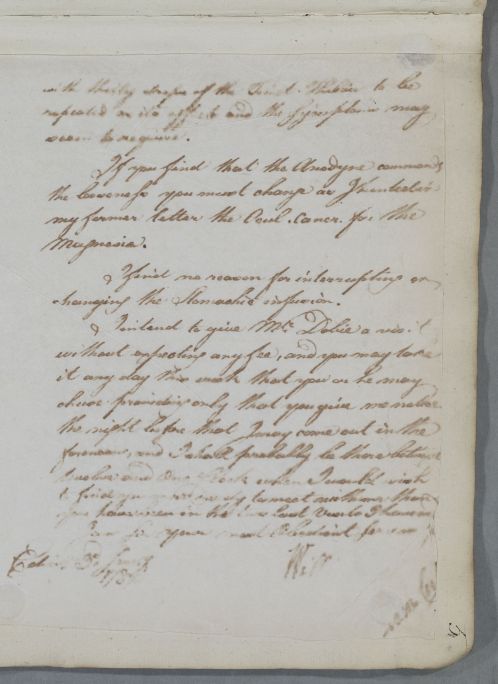 with thirty drops of the Tinct. Thebaic to be
repeated as its effects and the Symptoms may
seem to require.
If you find that the Anodyne commands
the looseness you must change as I hinted in
my former letter the Ocul. Cancr. for the
Magnesia.
I find no reason for interrupting or
changing the Stomachic infusion.
I intend to give Mr. Dobie a visit
without expecting any fee, and you may take
it any day this week that you or he may
chuse providing only that you give me notice
the night before that I may come out in the
forenoon, and I shall probably be there between
twelve and One o'Clock when I would wish
to find you
you have in the last
I am Sir your most Obedient
Edin.
Will